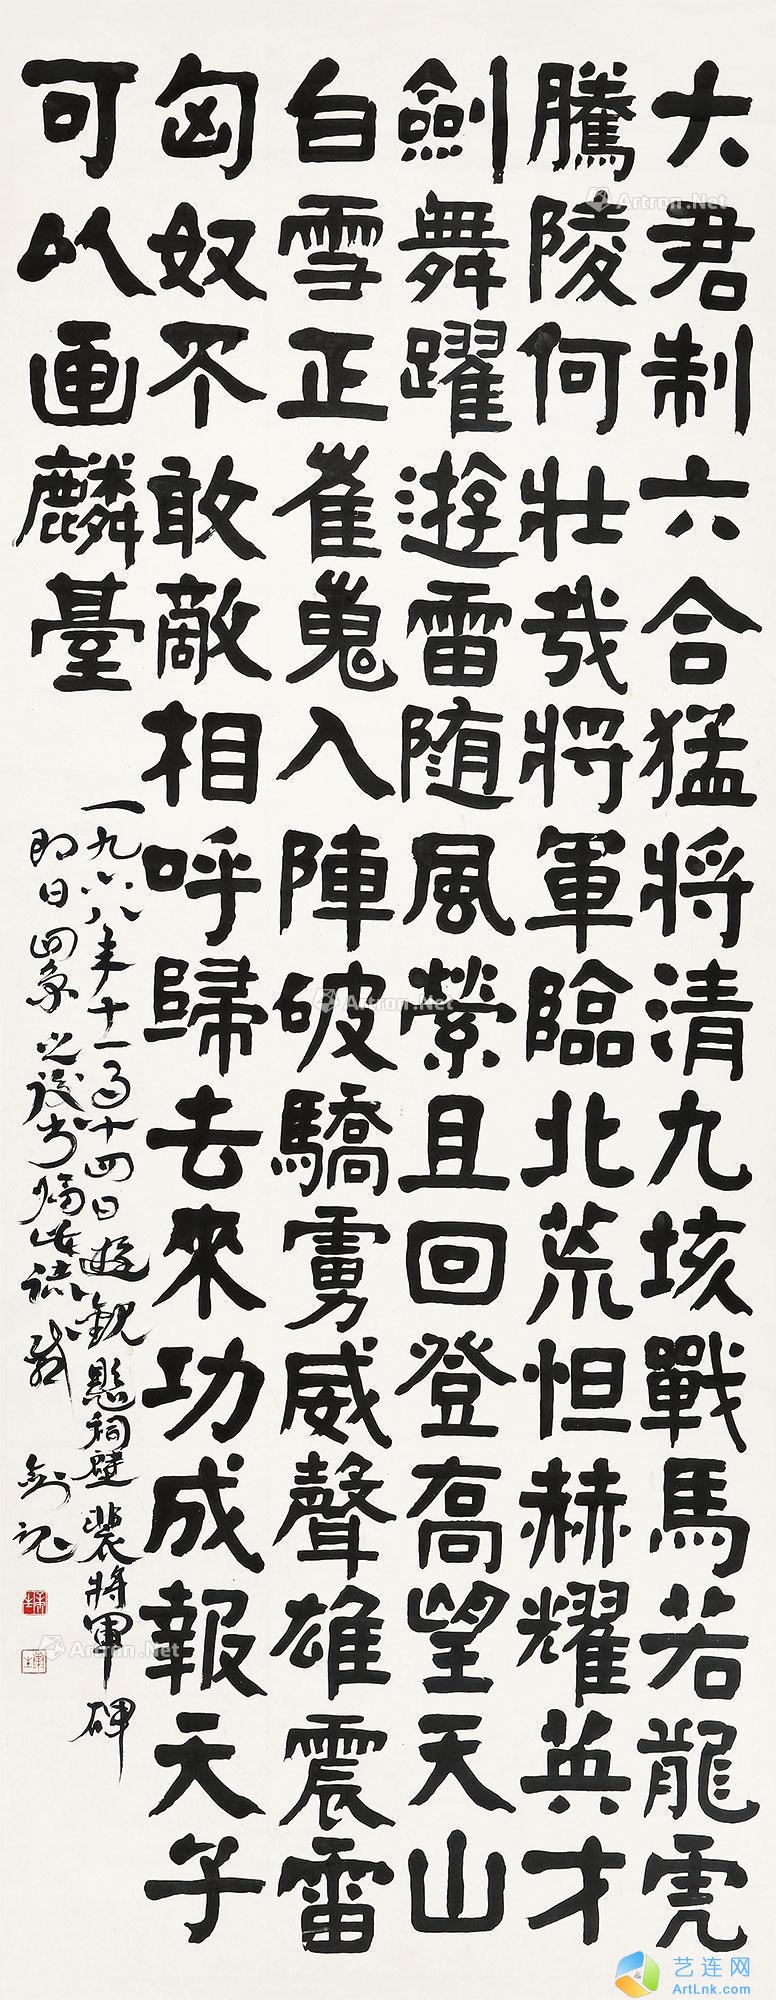 大君制六合猛将清九垓戰馬若龍虎
騰陵何壯哉将軍臨北荒怛赫耀英才
劍舞躍遊雷随風縈且回登高望天山
白雪正崔嵬入陣破驕虜威聲雄震雷
匈奴不敢敵相呼歸去來功成報天子
可以画麟臺
一九六八年十一月十四日遊觀懸祠壁裴將軍碑
即日回家之後
Artron.Net
Artron.Net
Artron.Net
艺连网
ArtLnk.com